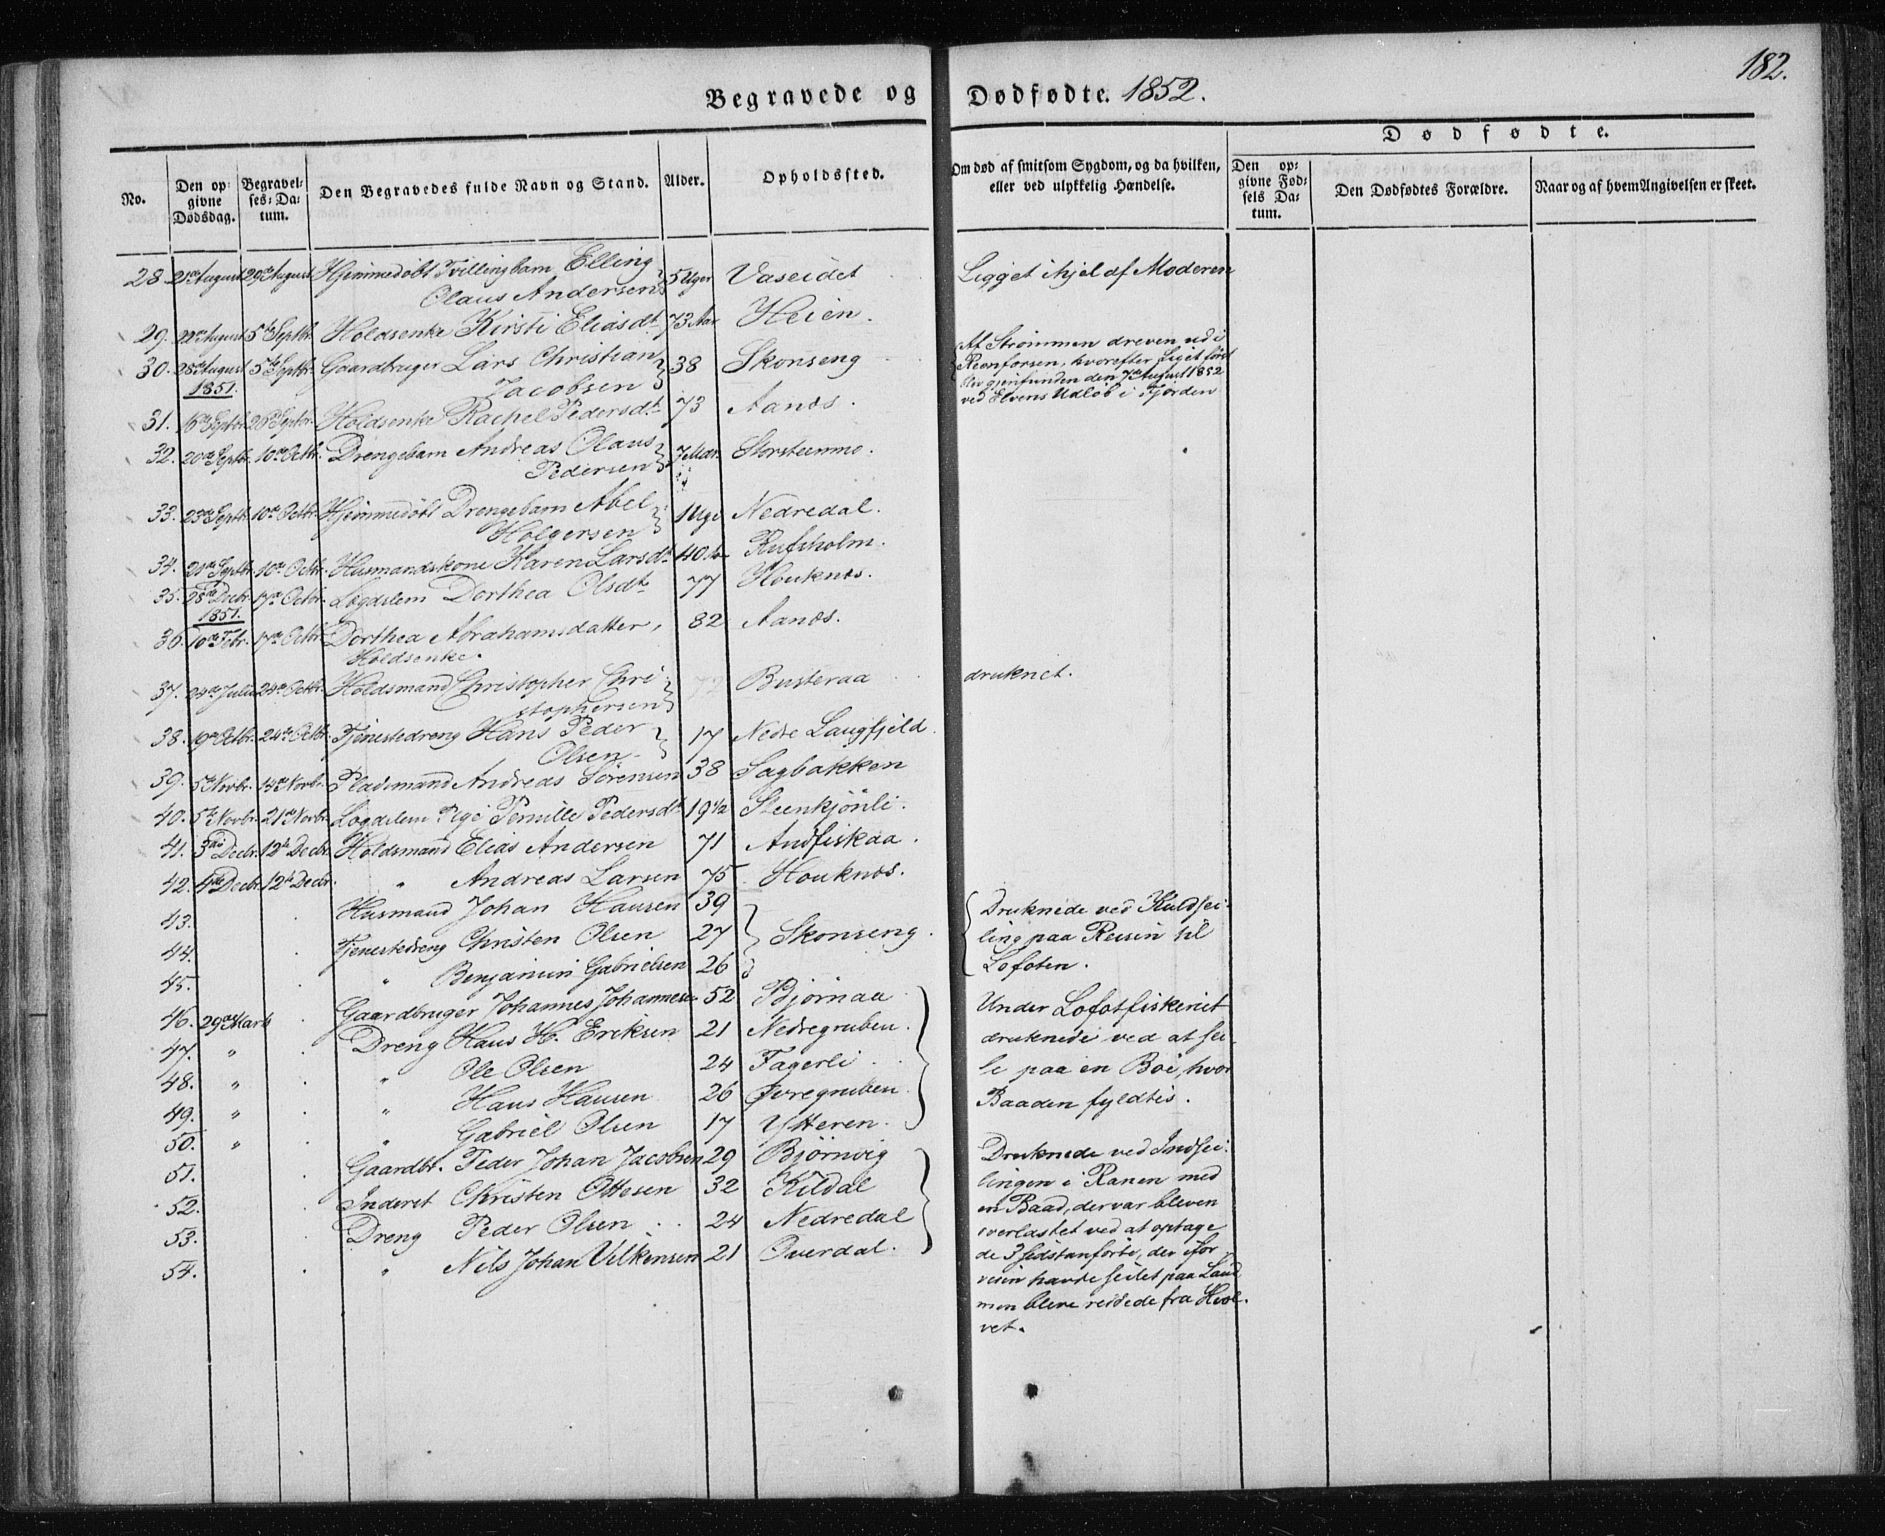 182.
Begravede og Dødfødte. 1852.
Dødfødte.
No.
Den opgivne Dødsdag.
Begravelses-Datum.
Den Begravedes fulde Navn og Stand.
Alder.
Opholdssted.
Om død af smitsom Sygdom, og da hvilken, eller ved ulykkelig Hændelse.
Den opgivne Fødsels Datum.
Den Dødfødtes Forældre.
Naar og af hvem Angivelsen er skeet.
28. 21de August 29de August Hjemmedøbt Tvillingbarn Elling 5 Uger Vaseidet Ligget ihjel af Moderen
Olaus Andersen
29. 22de August 5te Septbr. Holdsenke Kirsti Eliasdt. 73 Aar Heien.
30. 28de August 5te Septbr. Gaardbruger Lars Christian 38 Skonseng Af Strømmen dreven ud i
1851. Jacobsen Reenforsen, hvorefter Liget først
blev gjenfunden den 7de August 1852
ved Elvens Udløb i Fjorden
31. 16de Septbr. 26de Septbr. Holdsenke Rachel Pedersdt. 73 Aanæs.
32. 20de Septbr. 10de Octbr. Drengebarn Andreas Olaus 7 Mdr. Storsteenmo.
Pedersen
33. 23de Septbr. 10de Octbr. Hjemmedøbt Drengebarn Abel 1 Uge Nedredal.
Holgersen
34. 10de Octbr. Husmandskone Karen Larsdt. 40 Aar
35. 28de Decbr. 17de Octbr. Lægdslem Dorthea Olsdt. 77 Houknæs.
1851.
36. 10de Febr. 17de Octbr. Dorthea Abrahamsdatter, 82 Aanæs.
Holdsenke.
37. 24de Julii 24de Octbr. Holdsmand Christopher Chri- Busteraa druknet.
stophersen
38. 19de Octbr. 24de Octbr. Tjenestedreng Hans Peder 17 Nedre Langfjeld.
Olsen
39. 5te Novbr. 14de Novbr. Pladsmand Andreas Sørensen 38 Sagbakken
40. 5te Novbr. 21de Novbr. Lægdslem Pige Pernille Pedersdt. 19 1/2 Steenkjønli.
41. 3die Decbr. 12te Decbr. Holdsmand Elias Andersen 71 Andfiskaa.
42. 4de Decbr. 12te Decbr. " Andreas Larsen 75 Houknæs.
43. Husmand Johan Hansen 39 Druknede ved Kuldsei-
44. Tjenestedreng Christen Olsen 27 Skonseng. ling paa Reisen til
45. " Benjamin Gabrielsen 26 Lofoten.
46. 29de Marts Gaardbruger Johannes Johannesen 52 Bjørnaa Under Lofotfiskeriet
47. " Dreng Hans H. Eriksen 21 Nedregruben. druknede ved at sei-
48. " " Ole Olsen 24 Fagerli le paa en Boe, hvor
49. " " Hans Hansen 26 Øvregruben Baaden fyldtes.
50. " " Gabriel Olsen 17 Ytteren.
51. Gaardbr. Peder Johan Jacobsen 29 Bjørnvig Druknede ved Indsei-
52. Inderst Christen Ottesen 32 Kildal lingen i Ranen med
53. Dreng Peder Olsen 24 Nedredal en Baad, der var bleven
54. " Nils Johan Vilkensen 21 Overdal. overlastet ved at optage
de 3 sidstanførte, der ifor-
veien havde seilet paa Land
men bleve reddede fra Hvæl-
vet.